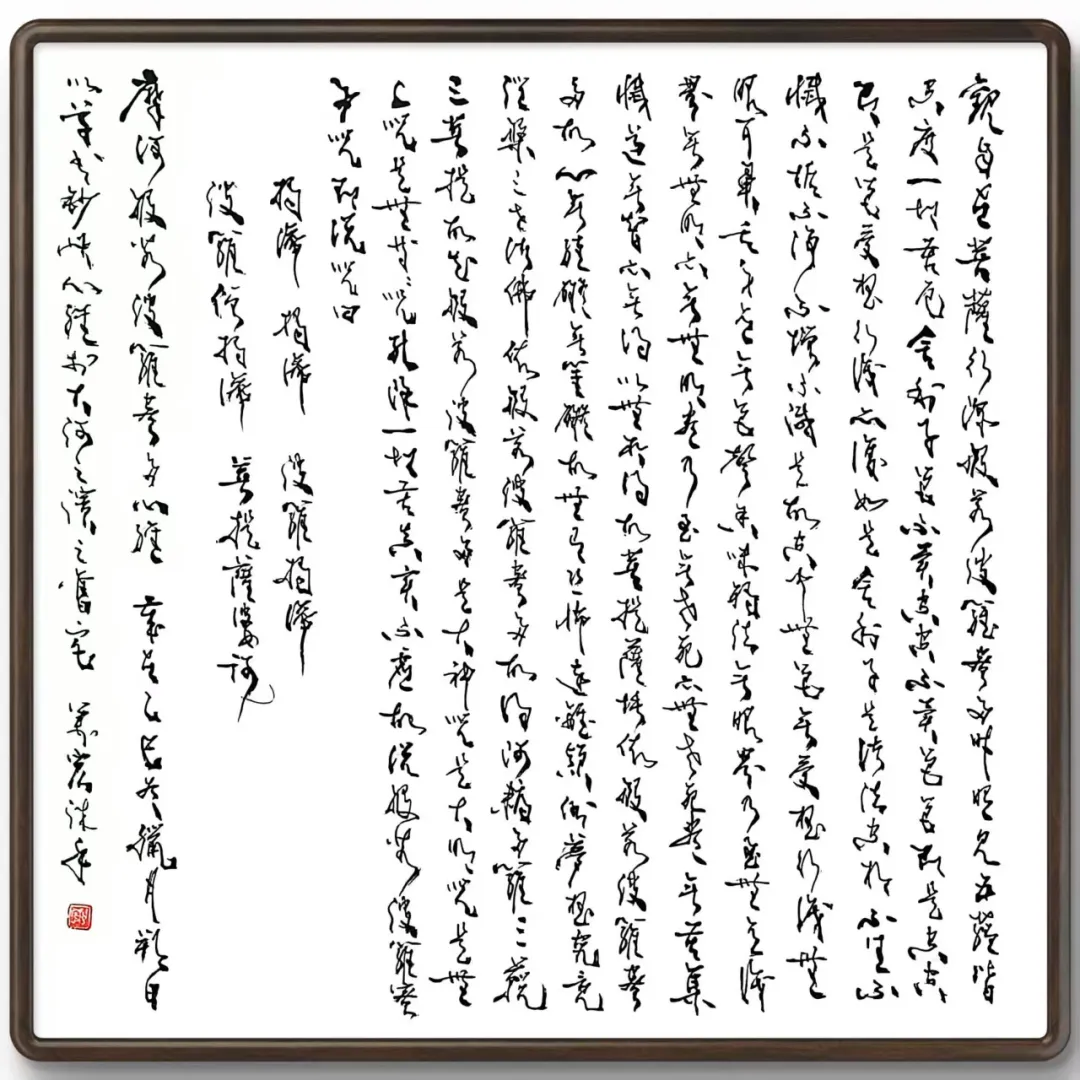 觀自在菩薩行深般若波羅蜜多時照見五蘊皆
空度一切苦厄舍利子色不異空空不異色色即是空空
即是色受想行識亦復如是舍利子是諸法空相不生不
滅不垢不淨不增不減是故空中無色無受想行識無
眼耳鼻舌身意無色聲香味觸法無眼界乃至無意識
界無無明亦無無明盡乃至無老死亦無老死盡無苦集
滅道無智亦無得以無所得故菩提薩埵依般若波羅蜜
多故心無罣礙無罣礙故無有恐怖遠離顛倒夢想究竟
涅槃三世諸佛依般若波羅蜜多故得阿耨多羅三藐
三菩提故知般若波羅蜜多是大神咒是大明咒是無
上咒是無等等咒能除一切苦真實不虛故說般若波羅蜜
多咒即說咒曰
揭諦 揭諦 波羅揭諦
波羅僧揭諦 菩提薩婆訶
摩訶般若波羅蜜多心經 臘月 日
以草書鈔 心經於大河之濱之舊宅